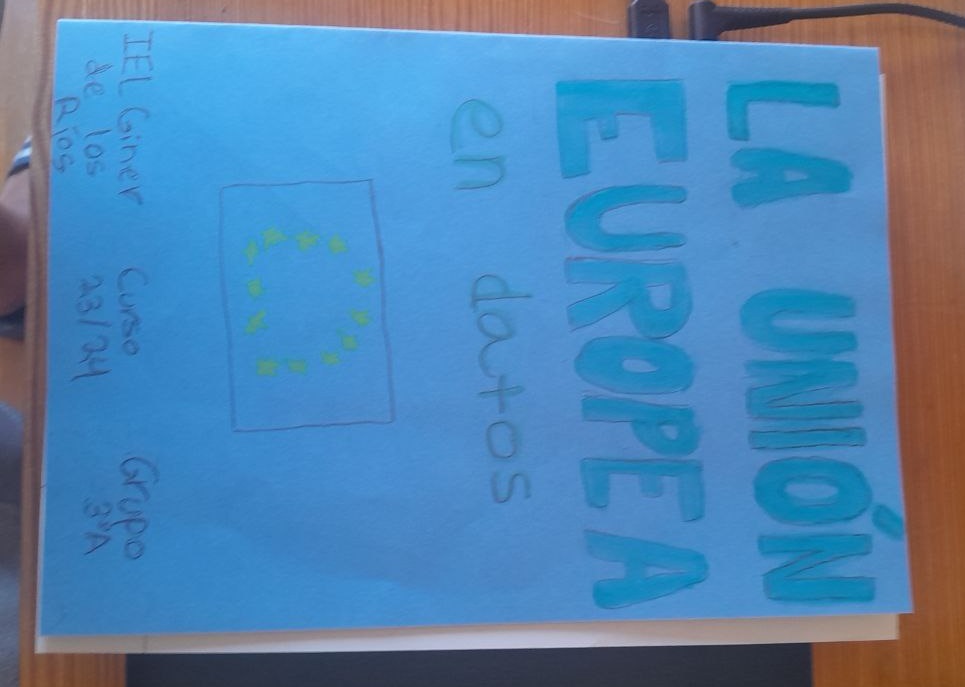 LA UNIÓN
EUROPEA
en datos
IEL Giner Curso Grupo
de los 23/24 3ºA
Ríos